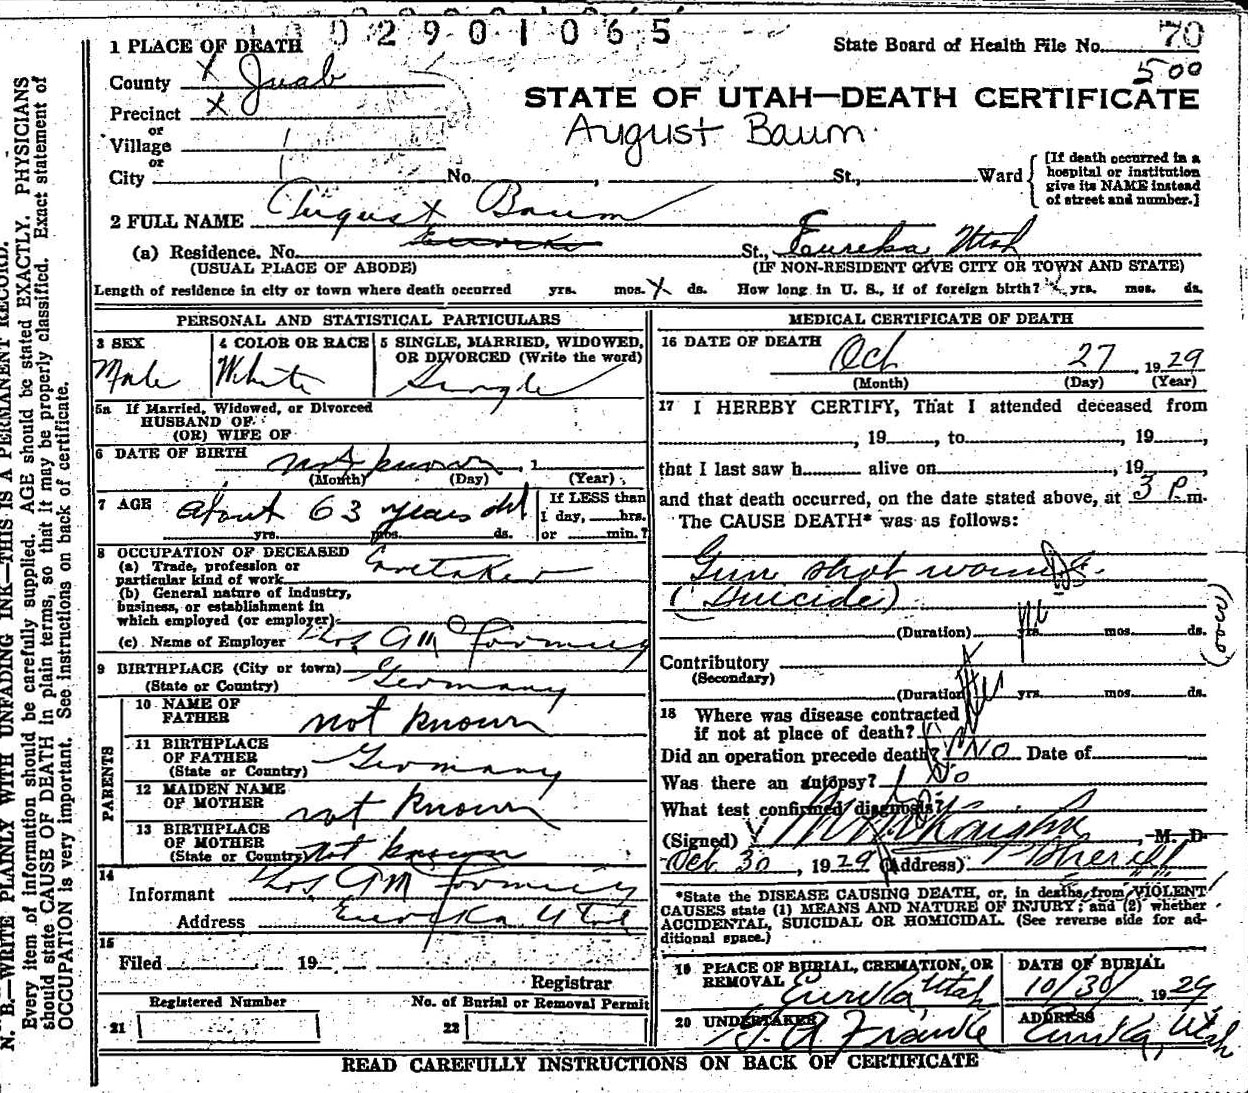 0 2 9 0 1 0 6 5
1 PLACE OF DEATH
State Board of Health File No. 70
500
County X Juab
STATE OF UTAH—DEATH CERTIFICATE
Precinct X
August Baum
or
Village
or
City No. , St., Ward
[If death occurred in a
hospital or institution
give its NAME instead
of street and number.]
2 FULL NAME August Baum
(a) Residence. No. Eureka St., Eureka Utah
(USUAL PLACE OF ABODE) (IF NON-RESIDENT GIVE CITY OR TOWN AND STATE)
Length of residence in city or town where death occurred yrs. mos. X ds. How long in U. S., if of foreign birth? yrs. mos. ds.
PERSONAL AND STATISTICAL PARTICULARS
3 SEX
Male
4 COLOR OR RACE
White
5 SINGLE, MARRIED, WIDOWED,
OR DIVORCED (Write the word)
Single
5a If Married, Widowed, or Divorced
HUSBAND OF
(OR) WIFE OF
6 DATE OF BIRTH
not known , 1
(Month) (Day) (Year)
7 AGE about 63 years old
yrs. mos. ds.
If LESS than
1 day, hrs.
or min.?
8 OCCUPATION OF DECEASED
(a) Trade, profession or
particular kind of work Caretaker
(b) General nature of industry,
business, or establishment in
which employed (or employer)
(c) Name of Employer
9 BIRTHPLACE (City or town)
(State or Country) Germany
PARENTS
10 NAME OF
FATHER not known
11 BIRTHPLACE
OF FATHER
(State or Country) Germany
12 MAIDEN NAME
OF MOTHER not known
13 BIRTHPLACE
OF MOTHER
(State or Country) Not known
14
Informant
Address Eureka Utah
15
Filed , 19
Registrar
Registered Number No. of Burial or Removal Permit
21 22
MEDICAL CERTIFICATE OF DEATH
16 DATE OF DEATH
Oct 27, 1929
(Month) (Day) (Year)
17 I HEREBY CERTIFY, That I attended deceased from
, 19 , to , 19 ,
that I last saw h alive on , 19 ,
and that death occurred, on the date stated above, at 3 P.m.
The CAUSE DEATH* was as follows:
Gun shot wound
(Suicide)
(Duration) yrs. mos. ds.
Contributory
(Secondary)
(Duration) yrs. mos. ds.
18 Where was disease contracted
if not at place of death?
Did an operation precede death? No Date of
Was there an autopsy? No
What test confirmed diagnosis?
(Signed) , M. D
Oct. 30, 1929 (Address)
*State the DISEASE CAUSING DEATH, or, in deaths from VIOLENT
CAUSES state (1) MEANS AND NATURE OF INJURY; and (2) whether
ACCIDENTAL, SUICIDAL OR HOMICIDAL. (See reverse side for ad-
ditional space.)
19 PLACE OF BURIAL, CREMATION, OR
REMOVAL Eureka Utah
DATE OF BURIAL
10/30, 1929
20 UNDERTAKER
ADDRESS
Eureka, Utah
READ CAREFULLY INSTRUCTIONS ON BACK OF CERTIFICATE
N. B.—WRITE PLAINLY WITH UNFADING INK—THIS IS A PERMANENT RECORD.
Every item of information should be carefully supplied. AGE should be stated EXACTLY. PHYSICIANS
should state CAUSE OF DEATH in plain terms, so that it may be properly classified. Exact statement of
OCCUPATION is very important. See instructions on back of certificate.